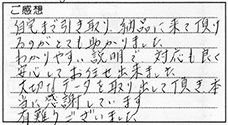 ご感想
自宅まで引き取り、納品に来て頂け
るのがとても助かりました
わかりやすい説明で、対応も良く
安心してお任せ出来ました。
大切なデータを取り出して頂き本
当に感謝しています
有難うございました